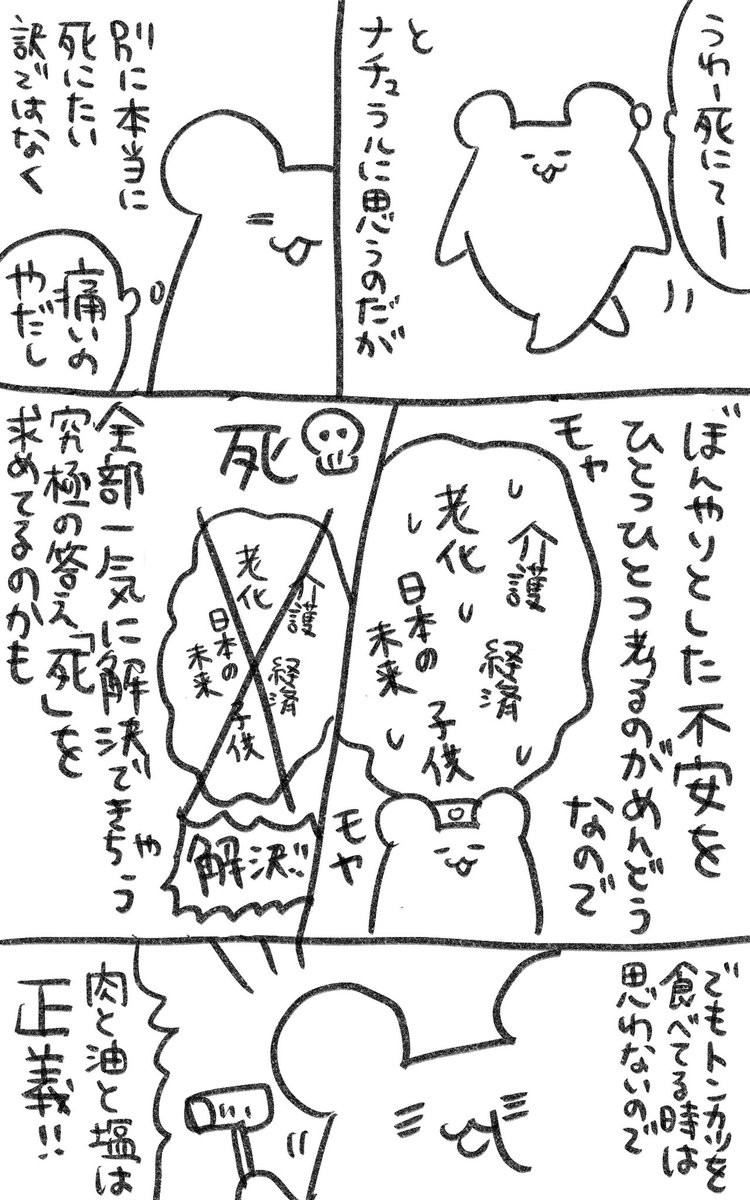 うわー死にてー
と
ナチュラルに思うのだが
別に本当に
死にたい
訳ではなく
痛いの
やだし
ぼんやりとした不安を
ひとつひとつ考るのがめんどう
なので
モヤ
介護
老化
経済
日本の
未来
子供
モヤ
死
介護
老化
経済
日本の
未来
子供
解決!!
全部一気に解決できちゃう
究極の答え「死」を
求めてるのかも
でもトンカツを
食べてる時は
思わないので
肉と油と塩は
正義!!